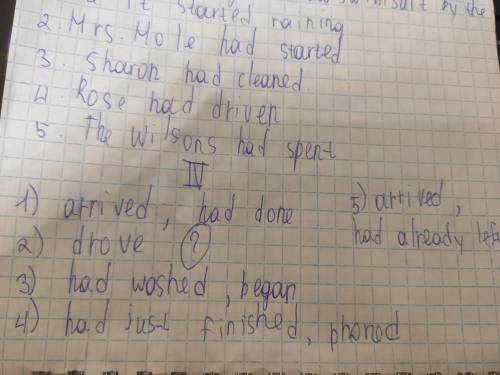 it started raining swimsuit by the
2. Mrs. Mole had started
3. Sharon had cleaned.
4. Rose had driven
5. The Wilsons had spent
IV
1) arrived, had done
2) drove ?
3) had woshed, began
4) had just finished, phoned
5) arrived,
had already left